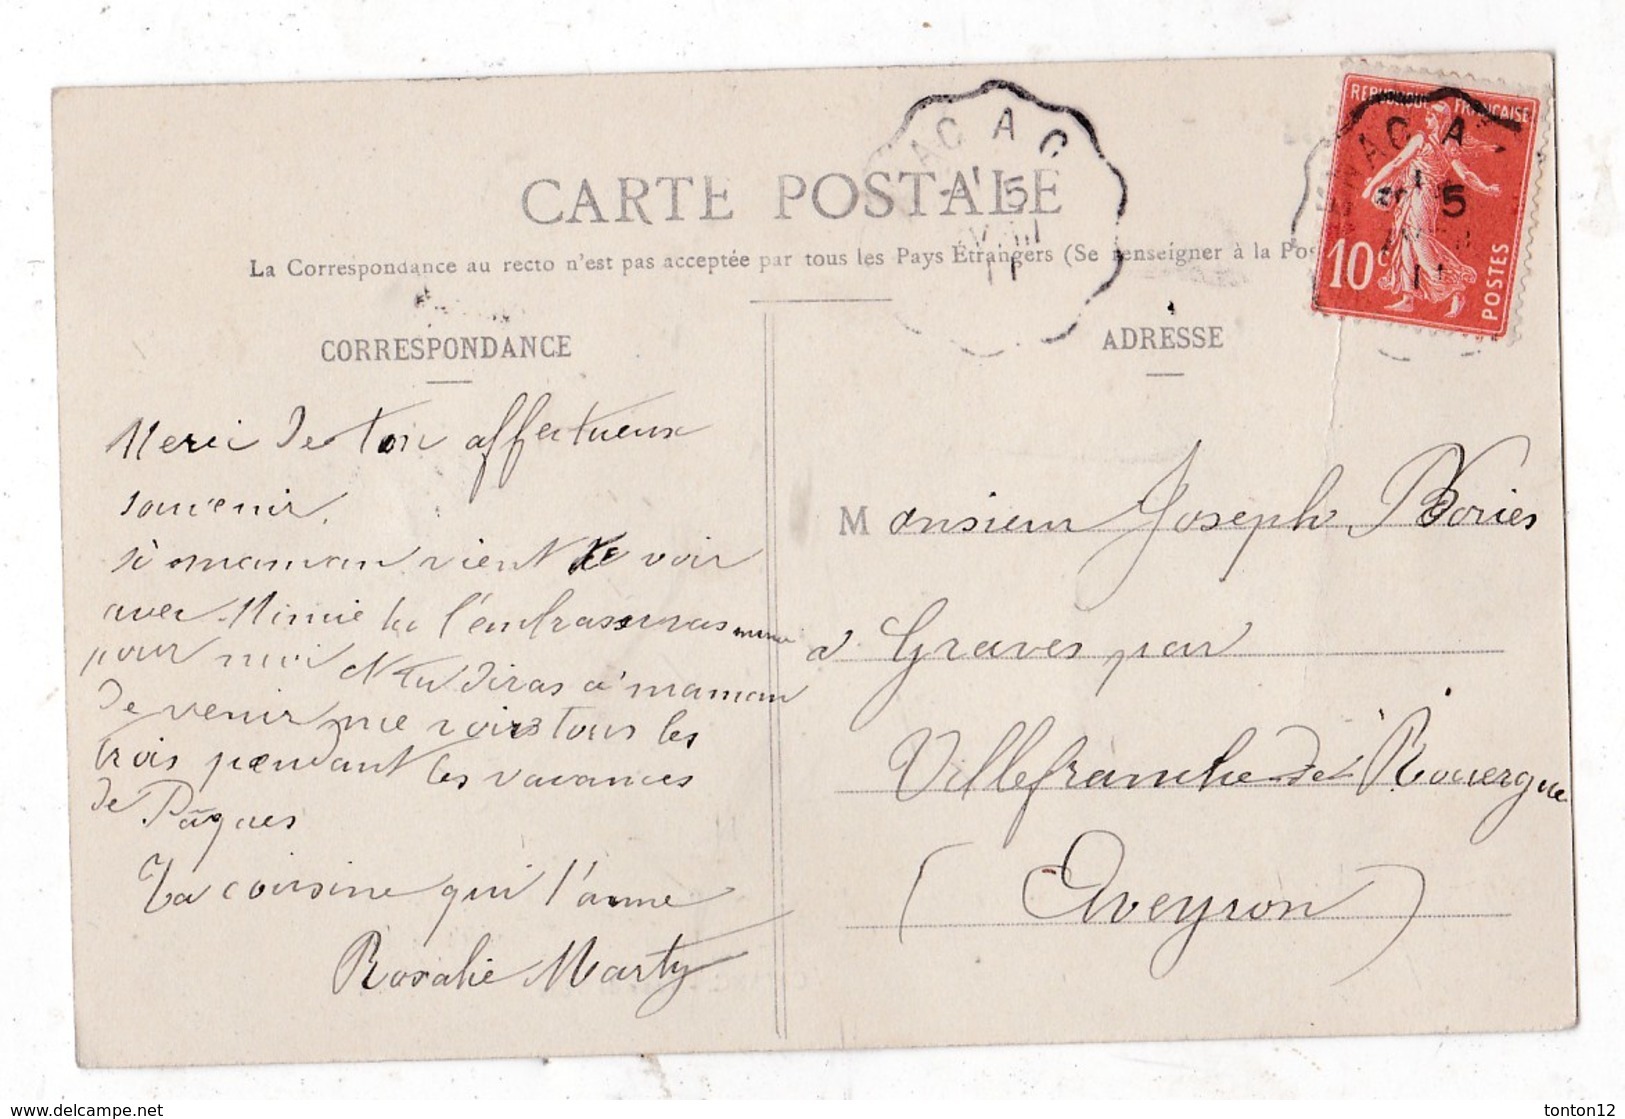 CARTE POSTALE
La Correspondance au recto n'est pas acceptée par tous les Pays Étrangers (Se renseigner à la Pos
CORRESPONDANCE
Merci de ton affectueux
souvenir.
si maman vient te voir
avec Mimie tu l'embrasseras
pour moi et tu diras a maman
de venir me voir tous les
trois pendant les vacances
de Pâques
Ta cousine qui t'aime
Rosalie Marty
ADRESSE
Monsieur Joseph Bories
à Graves par
Villefranche de Rouergue
(Aveyron)
REPUBLIQUE FRANÇAISE
10c
POSTES
NAC A C
5
11
NAC A
5
11
www.delcampe.net
tonton12